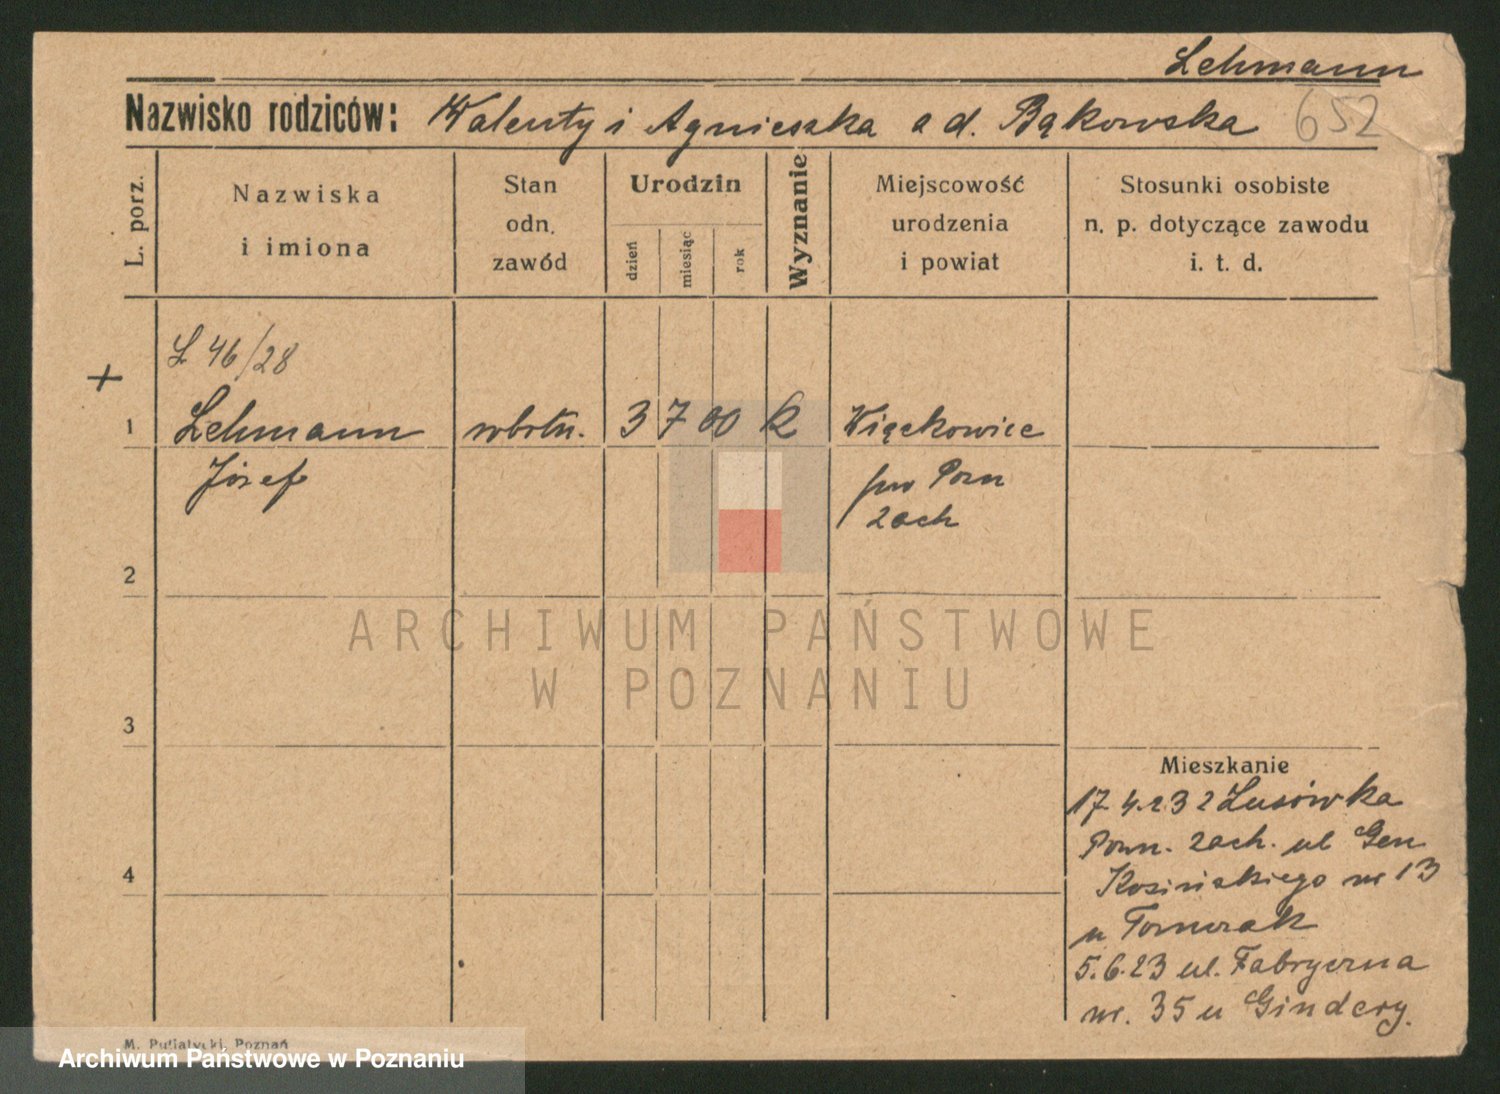 Lehmann
Nazwisko rodziców: Walenty i Agnieszka a d. Bąkowska 652
L. porz.
Nazwiska
i imiona
Stan
odn.
zawód
Urodzin
dzień
miesiąc
rok
Wyznanie
Miejscowość
urodzenia
i powiat
Stosunki osobiste
n. p. dotyczące zawodu
i. t. d.
L 46/28
+
1 Lehmann robotn. 3 7 00 k Więckowice
Józef pow Pozn
zach
2
ARCHIWUM PAŃSTWOWE
W POZNANIU
3
Mieszkanie
17.4.23 z Lusówka
Pozn. zach. ul Gen
4
Kosińskiego nr 13
u
5.6.23 ul. Fabryczna
nr. 35 u Gindery.
M. Putiatycki, Poznań
Archiwum Państwowe w Poznaniu